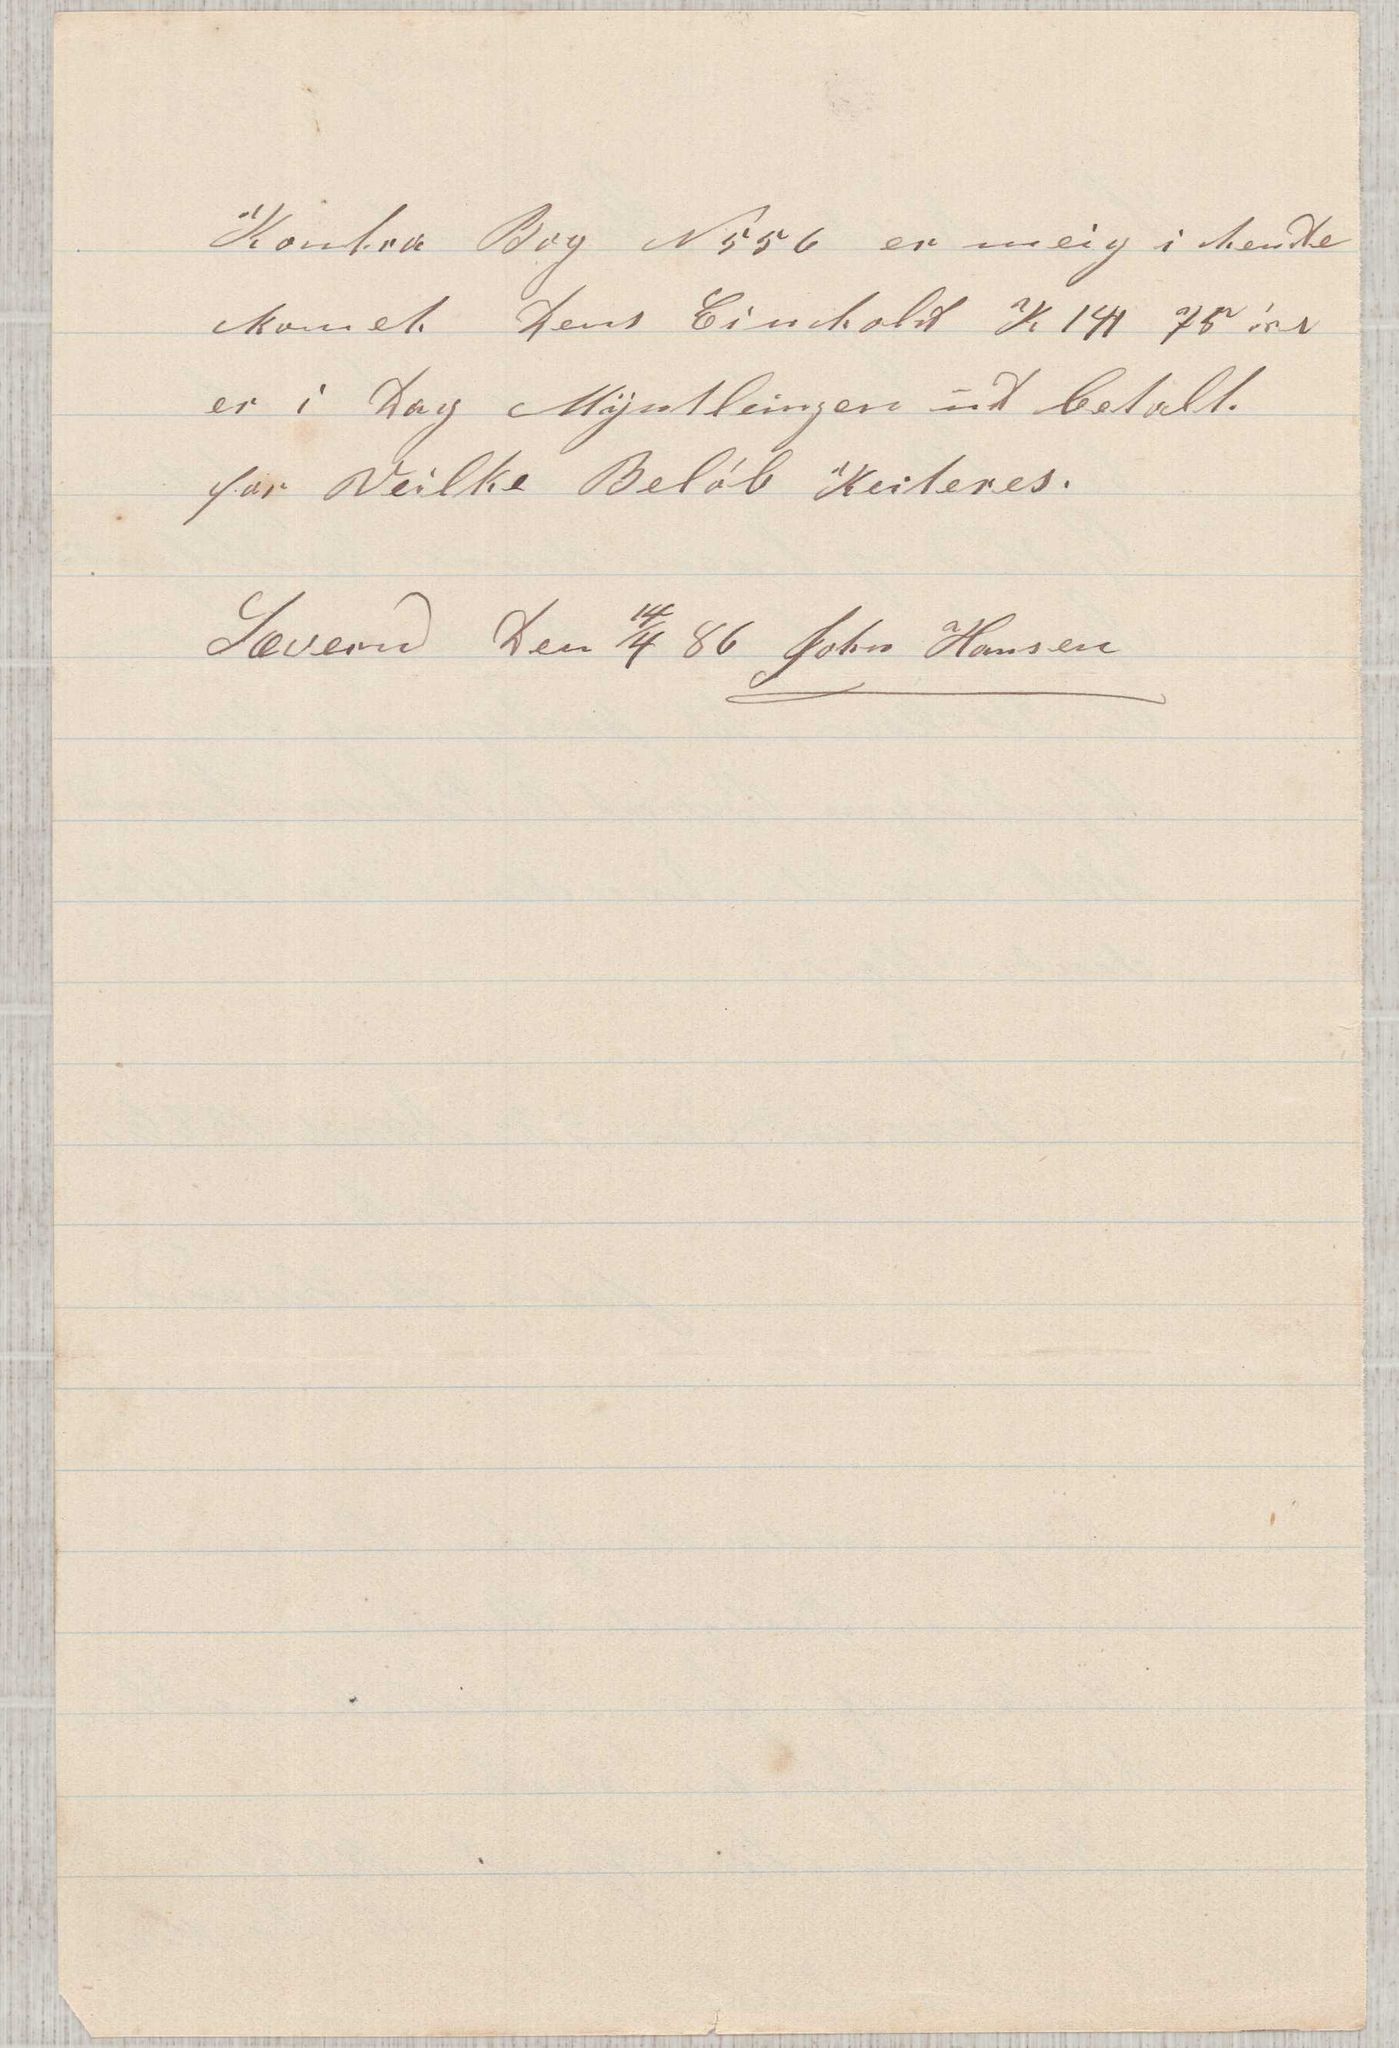 Kontra Bog N 556 er meig i hende
komet. Dens Einhold K 141 75 ör
er i Dag Myntlingen ud betalt.
for Veilke Belöb Keiteres.
Sævern Den 14/4 86 John Hansen